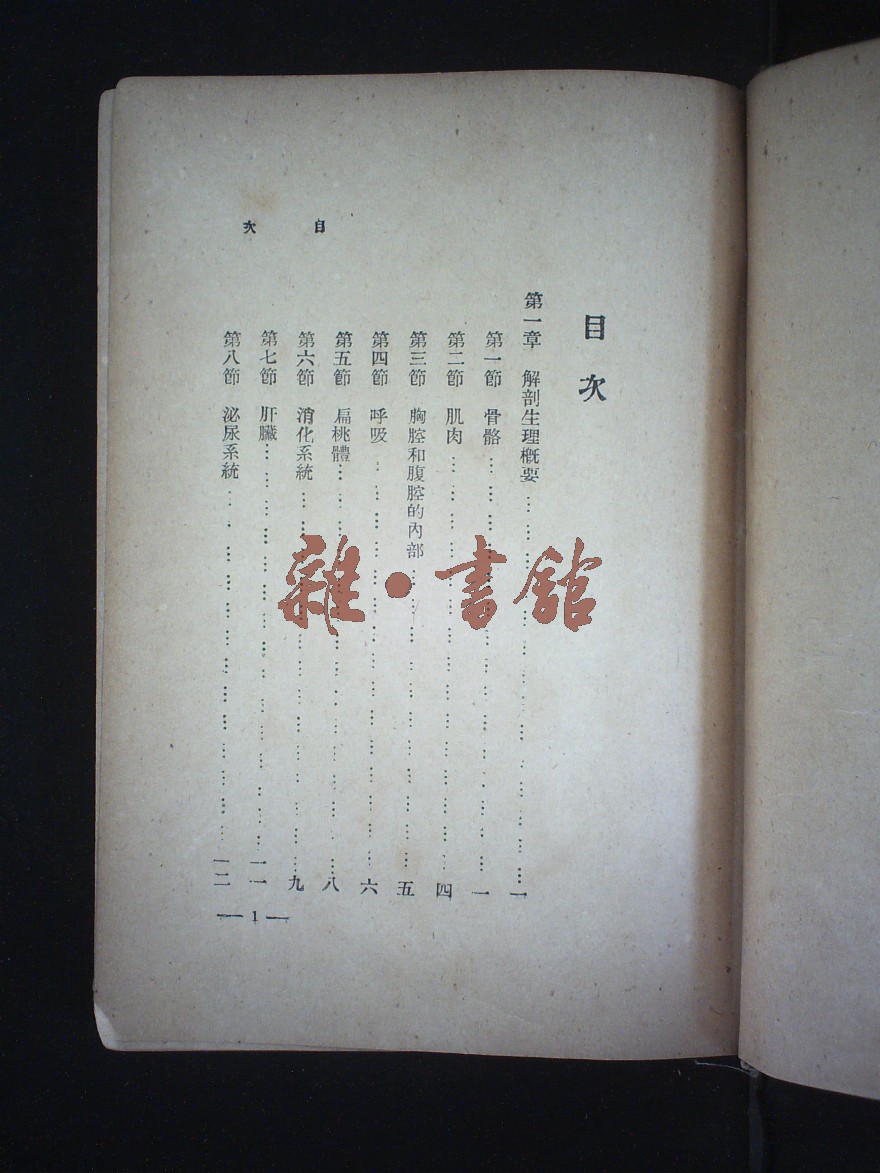 目次
目次
第一章 解剖生理概要…………………一
第一節 骨骼…………………一
第二節 肌肉…………………四
第三節 胸腔和腹腔的內部…………………五
第四節 呼吸…………………六
第五節 扁桃體…………………八
第六節 消化系統…………………九
第七節 肝臟…………………一一
第八節 泌尿系統…………………一二
— 1 —
雜·書館